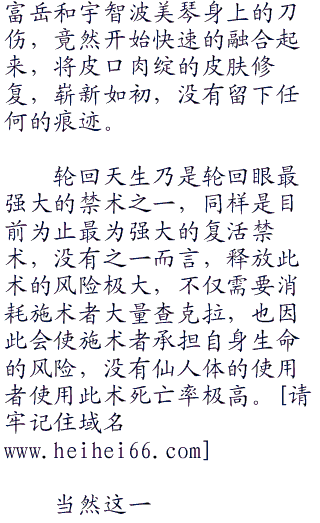 富岳和宇智波美琴身上的刀
伤，竟然开始快速的融合起
来，将皮口肉绽的皮肤修
复，崭新如初，没有留下任
何的痕迹。
轮回天生乃是轮回眼最
强大的禁术之一，同样是目
前为止最为强大的复活禁
术，没有之一而言，释放此
术的风险极大，不仅需要消
耗施术者大量查克拉，也因
此会使施术者承担自身生命
的风险，没有仙人体的使用
者使用此术死亡率极高。[请
牢记住域名
www.heihei66.com]
当然这一